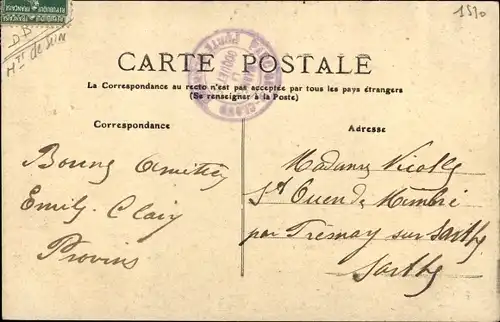 1510
CARTE POSTALE
La Correspondance au recto n'est pas acceptée par tous les pays étrangers
(Se renseigner à la Poste)
Correspondance
Adresse
Bonne Amitiés
Emily. Clairy
Provins
Madame Nicolle
St Ouen de Mimbré
par Fresnay sur Sarthe
Sarthe